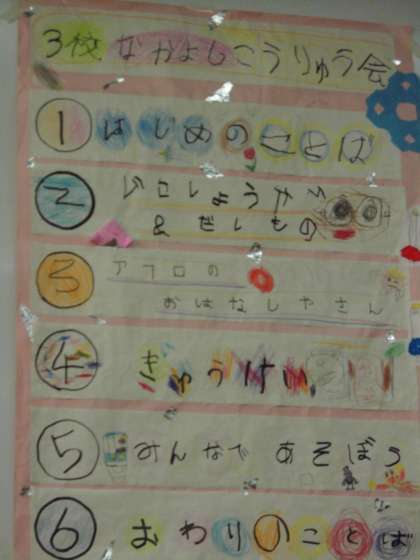 3校なかよしこうりゅう会
① はじめのことば
② じこしょうかい
& だしもの
③ アフロの
おはなしやさん
④ きゅうけい
⑤ みんなで あそぼう
⑥ おわりのことば